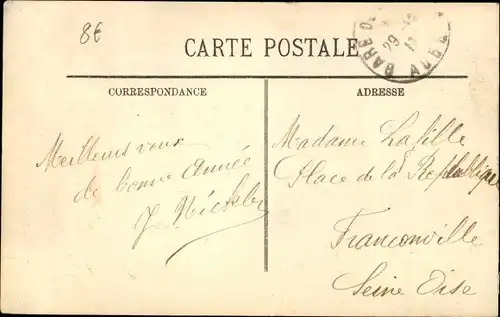 8€
CARTE POSTALE
29 -12
CORRESPONDANCE
ADRESSE
Meilleurs vœux
de bonne année
Madame Lafille
Place de la République
Franconville
Seine Oise